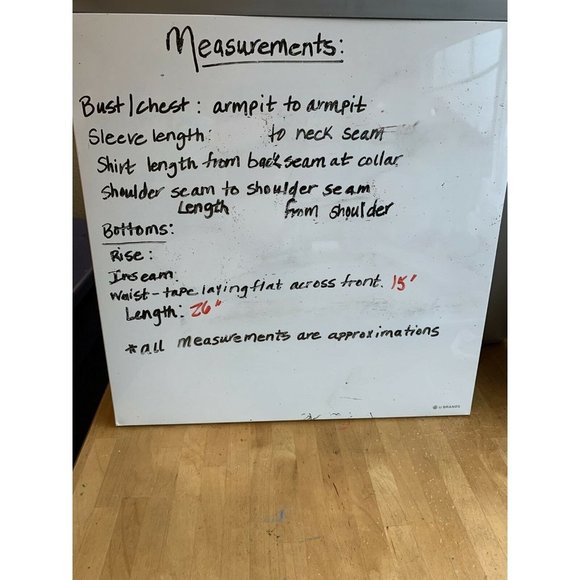 Measurements:
Bust/chest: armpit to armpit
Sleeve length: to neck seam
Shirt length from back seam at collar
Shoulder seam to shoulder seam
Length from shoulder
Bottoms:
Rise:
Inseam
Waist-tape laying flat across front. 15"
Length: 26"
*all measurements are approximations
U BRANDS